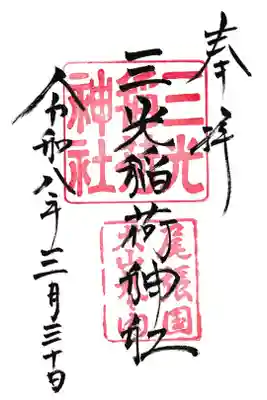 奉拝
三光稲荷神社
令和八年三月三十日
三光
稲荷
神社
尾張国
犬山城内